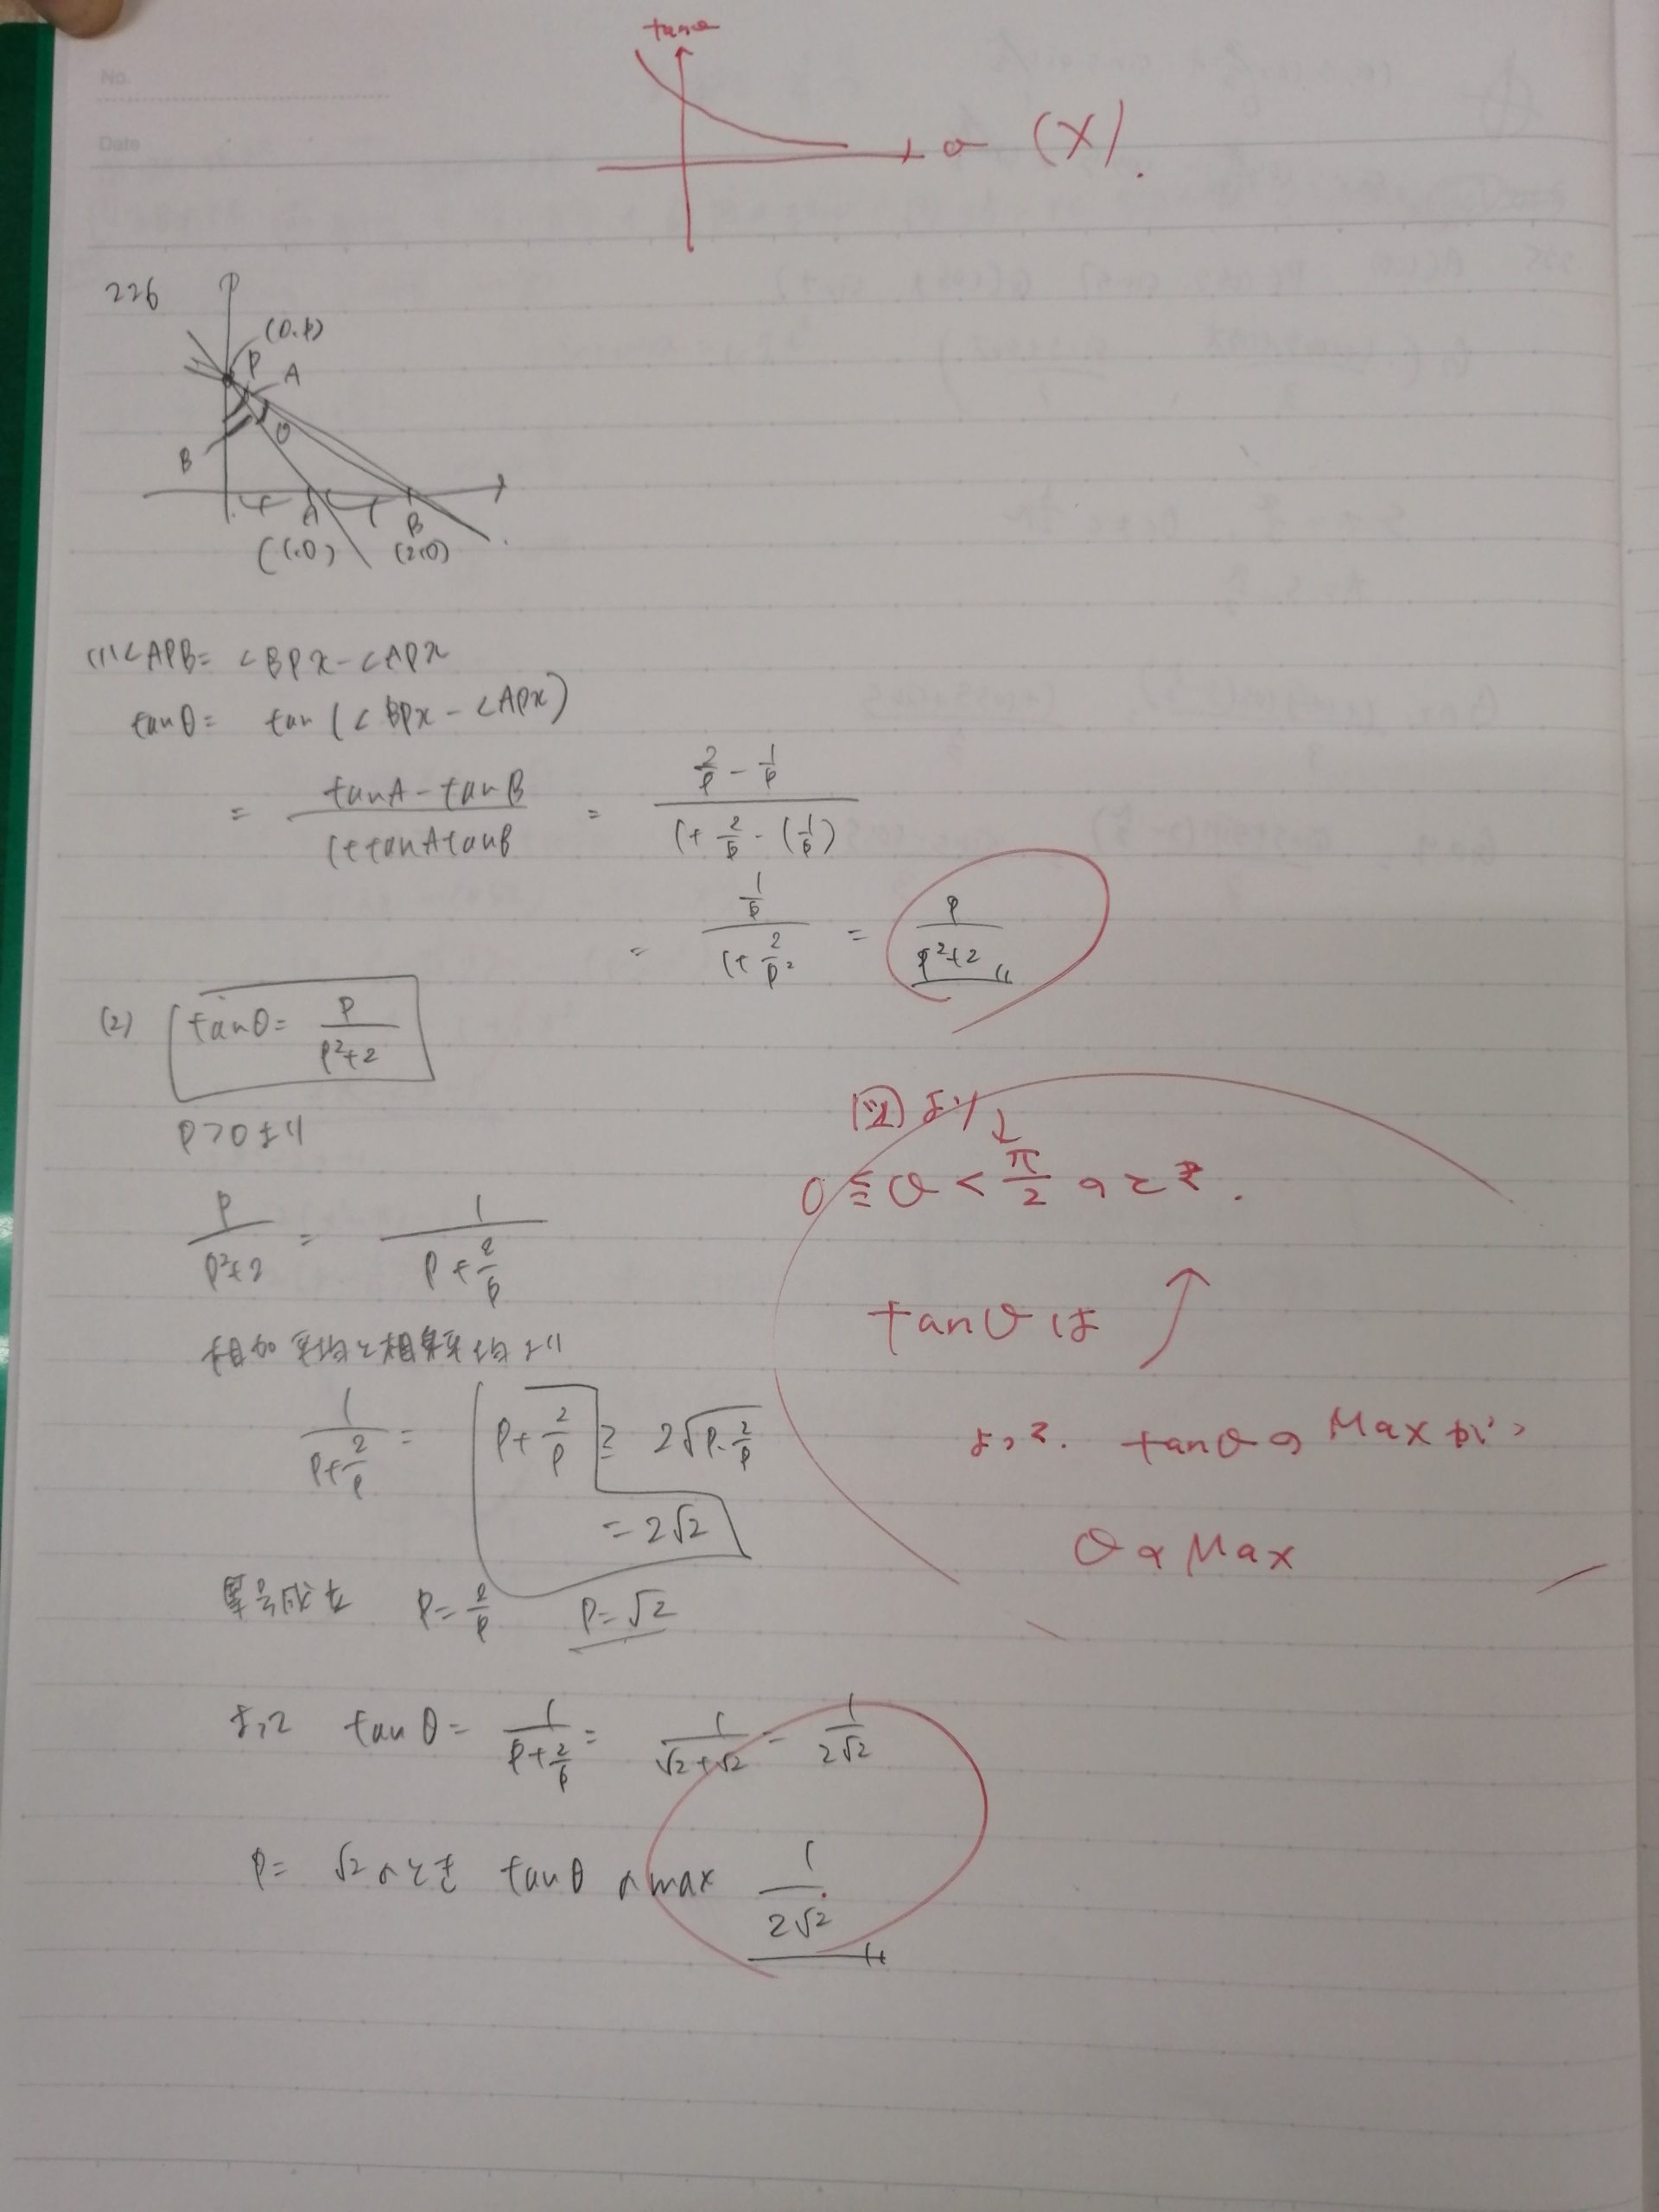 No.
Date
tanθ
θ (X).
226
(0.p)
P
A
θ
B
A
B
(1.0)
(2.0)
(1) ∠APB = ∠BPx - ∠APx
tanθ = tan(∠BPx - ∠APx)
= (tanA - tanB)/(1+tanAtanB) = (2/p - 1/p)/(1+ 2/p·(1/p))
= (1/p)/(1+ 2/p²) = p/(p²+2)
(2) tanθ = p/(p²+2)
p>0より
p/(p²+2) = 1/(p+2/p)
相加平均と相乗平均より
1/(p+2/p) = p+2/p ≧ 2√(p·2/p)
= 2√2
等号成立 p=2/p p=√2
よって tanθ = 1/(p+2/p) = 1/(√2+√2) = 1/(2√2)
p= √2のとき tanθのmax 1/(2√2)
(図)より↓
0≦θ<π/2のとき.
tanθは↑
よって. tanθのMaxが
θのMax